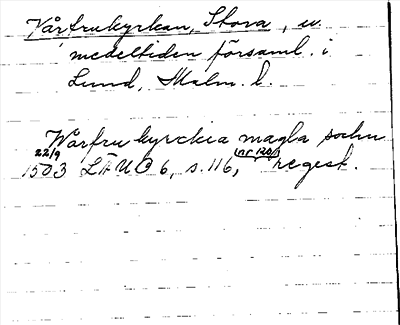 Vårfrukyrkan, Stora, u.
medeltiden församl. i
Lund, Malm. l.
Warfru kyrckia magla sochn
22/9
1503 LÄUO 6, s. 116, (nr 120) regest.